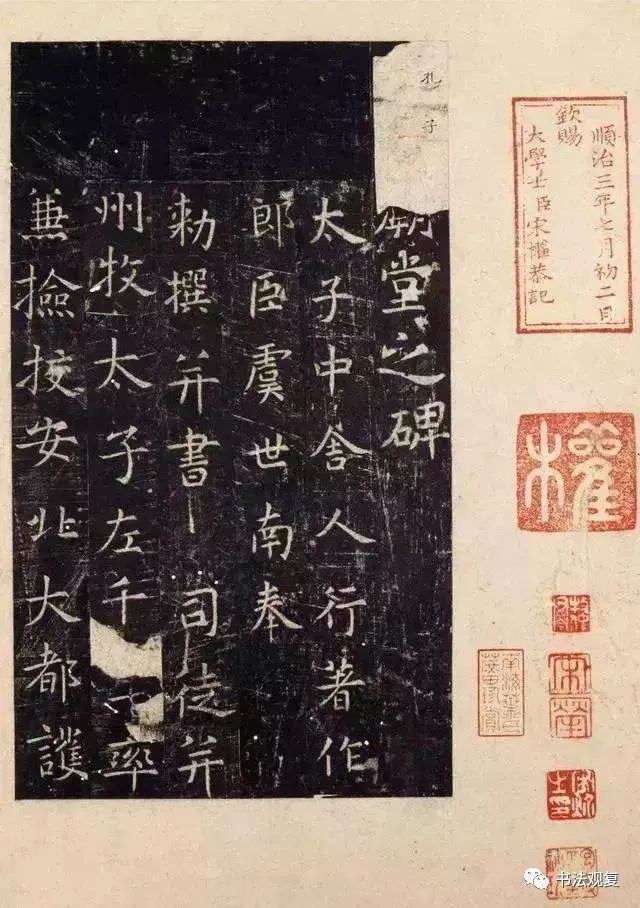 順治三年七月初二日
欽賜
大學士臣宋權恭記
權
孔子
廟堂之碑
太子中舍人行著作
郎臣虞世南奉
勅撰并書 司徒并
州牧太子左千 率
兼撿挍安北大都護
书法观复